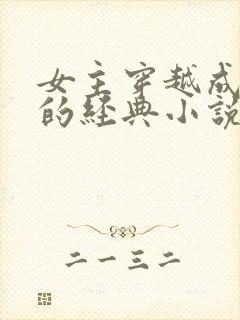 女主穿越成
的经典小说
二一三二